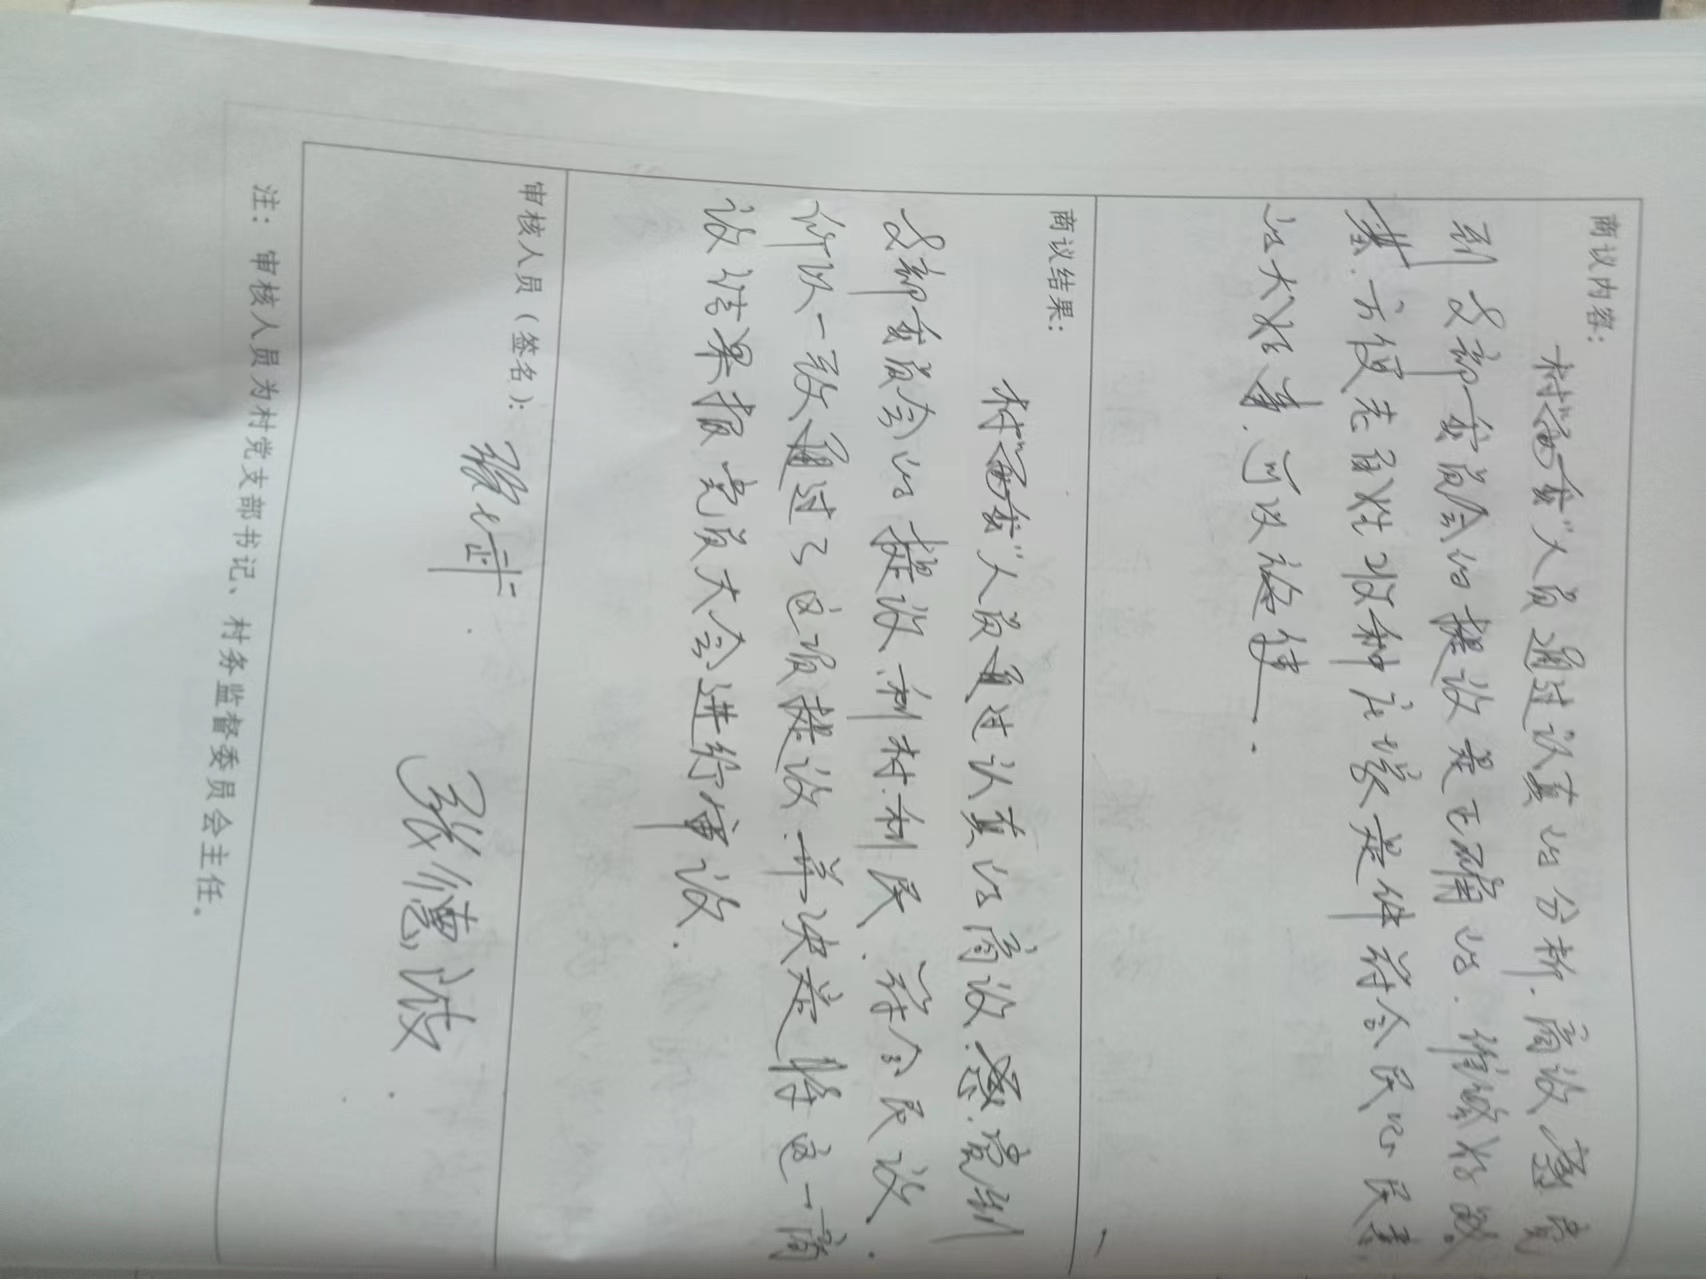 商议内容：
村"两委"人员通过认真的分析.商议,党
到支部委员会的提议是正确的.维修好路
基.方便老百姓收种庄稼是件符合民心民意
的大好事.可以施使.
商议结果：
村"两委"人员通过认真的商议.党到
支部委员会的提议.利村.利民.符合民议.
所以一致通过了这项提议.并决定将这一商
议结果报党员大会进行审议.
审核人员（签名）：
张德波
注：审核人员为村党支部书记、村务监督委员会主任。